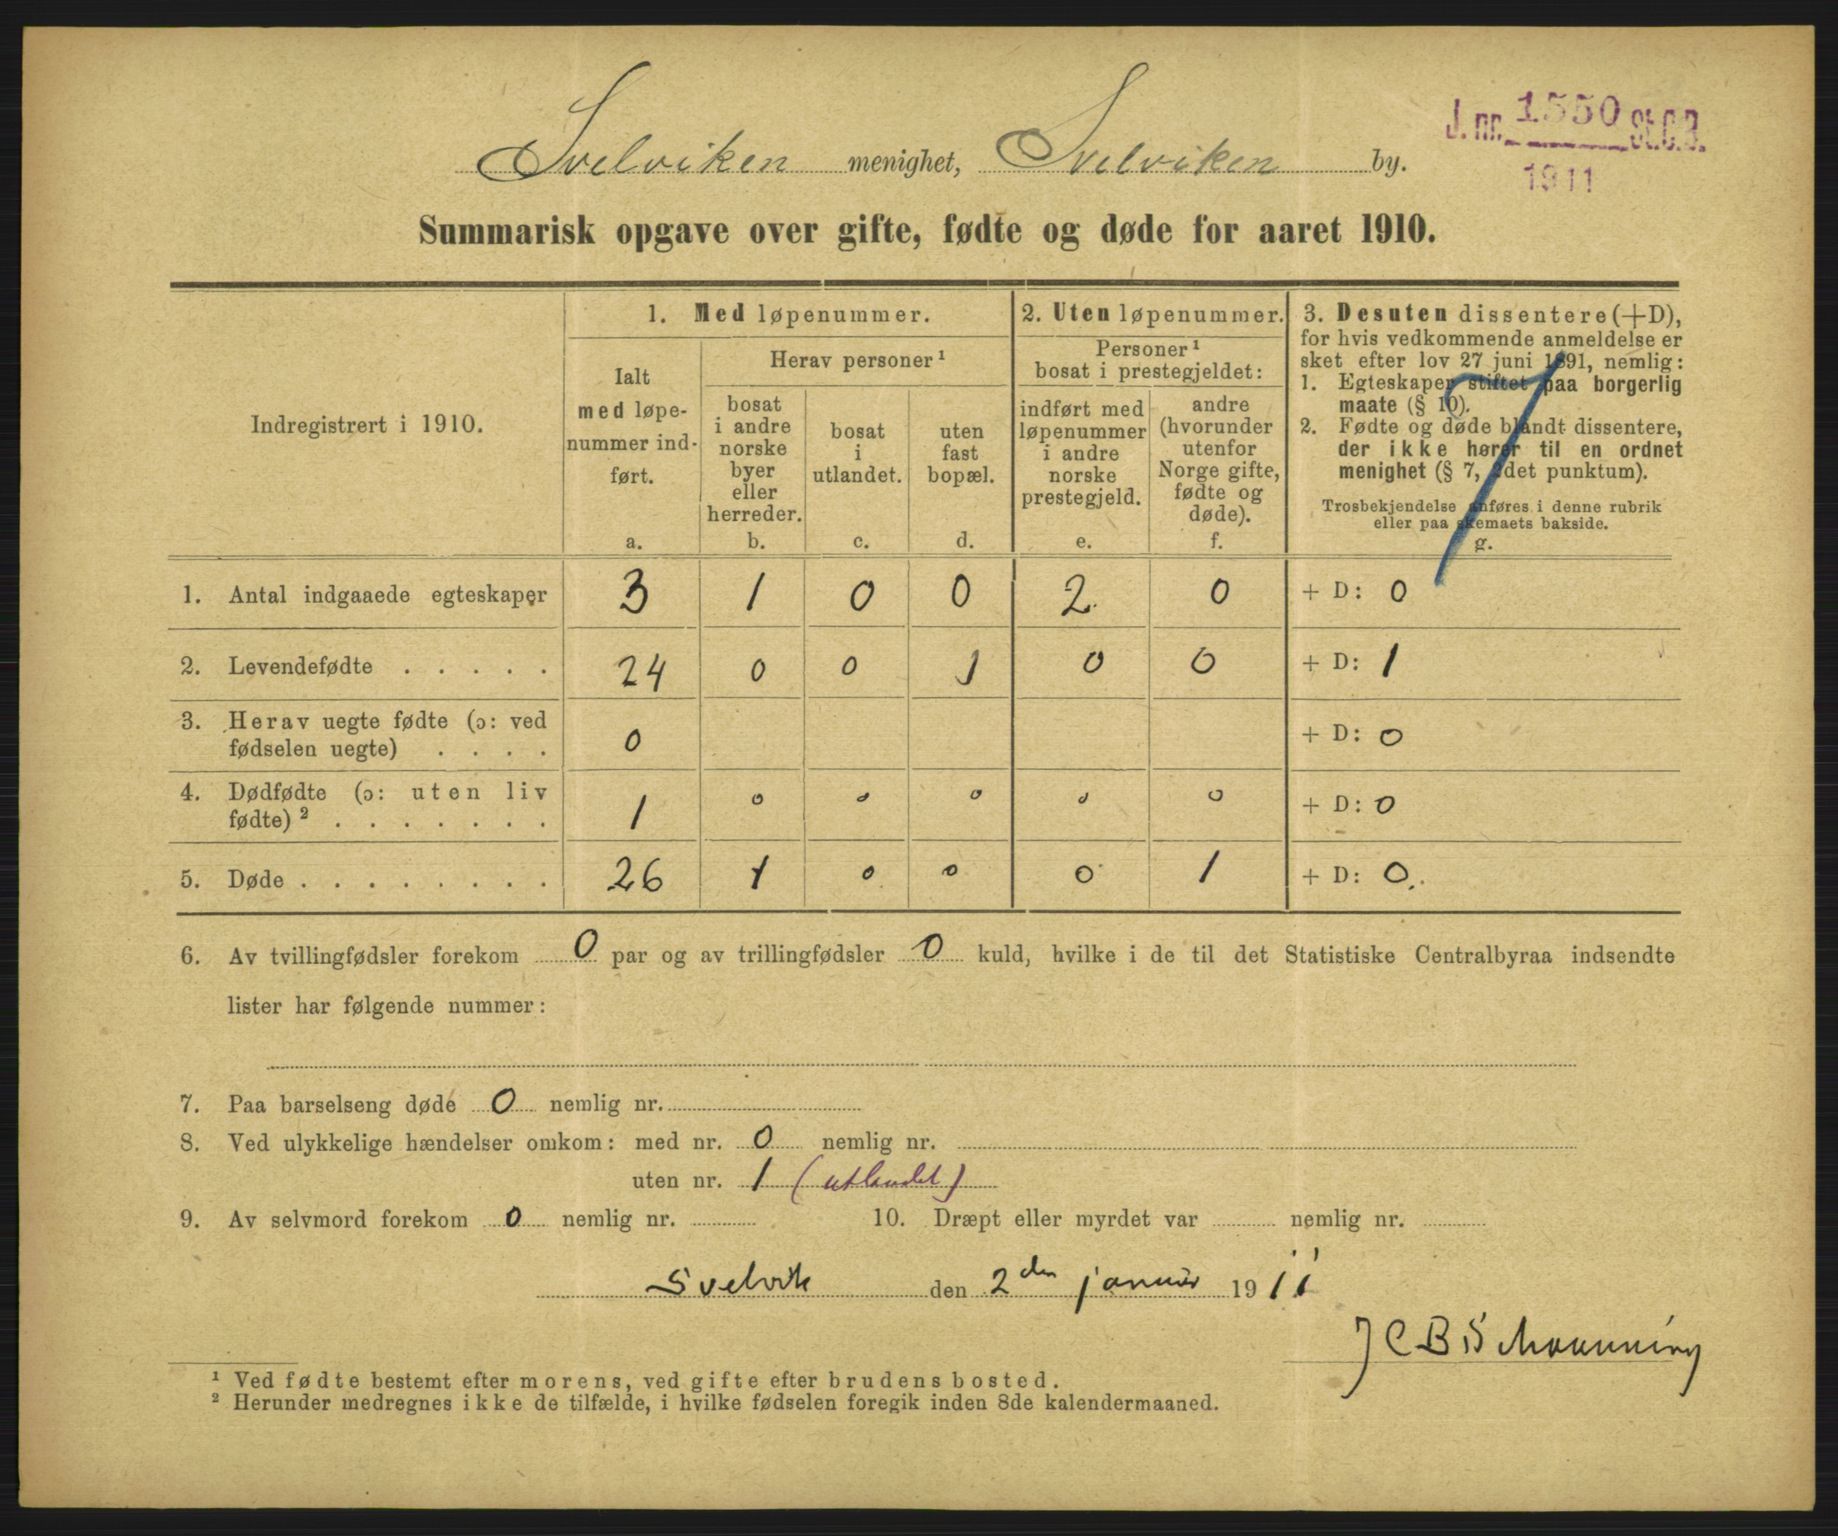 Svelviken menighet, Svelviken by.
J. nr. 1550 St.C.B.
1911
Summarisk opgave over gifte, fødte og døde for aaret 1910.
Indregistrert i 1910.
1. Med løpenummer.
Ialt
med løpe-
nummer ind-
ført.
a.
Herav personer ¹
bosat
i andre
norske
byer
eller
herreder.
b.
bosat
i
utlandet.
c.
uten
fast
bopæl.
d.
2. Uten løpenummer.
Personer ¹
bosat i prestegjeldet:
indført med
løpenummer
i andre
norske
prestegjeld.
e.
andre
(hvorunder
utenfor
Norge gifte,
fødte og
døde).
f.
3. Desuten dissentere (+D),
for hvis vedkommende anmeldelse er
sket efter lov 27 juni 1891, nemlig:
1. Egteskaper stiftet paa borgerlig
maate (§ 10).
2. Fødte og døde blandt dissentere,
der ikke hører til en ordnet
menighet (§ 7, 2det punktum).
Trosbekjendelse anføres i denne rubrik
eller paa skemaets bakside.
g.
1. Antal indgaaede egteskaper 3 1 0 0 2 0 + D: 0
2. Levendefødte . . . . . 24 0 0 1 0 0 + D: 1
3. Herav uegte fødte (ɔ: ved
fødselen uegte) . . . . 0 + D: 0
4. Dødfødte (ɔ: uten liv
fødte) ² . . . . . . . 1 0 0 0 0 0 + D: 0
5. Døde . . . . . . . . 26 1 0 0 0 1 + D: 0.
6. Av tvillingfødsler forekom 0 par og av trillingfødsler 0 kuld, hvilke i de til det Statistiske Centralbyraa indsendte
lister har følgende nummer:
7. Paa barselseng døde 0 nemlig nr.
8. Ved ulykkelige hændelser omkom: med nr. 0 nemlig nr.
uten nr. 1 (utlandet)
9. Av selvmord forekom 0 nemlig nr. 10. Dræpt eller myrdet var nemlig nr.
Svelvik den 2den januar 1911
J C B Schmunning
¹ Ved fødte bestemt efter morens, ved gifte efter brudens bosted.
² Herunder medregnes ikke de tilfælde, i hvilke fødselen foregik inden 8de kalendermaaned.